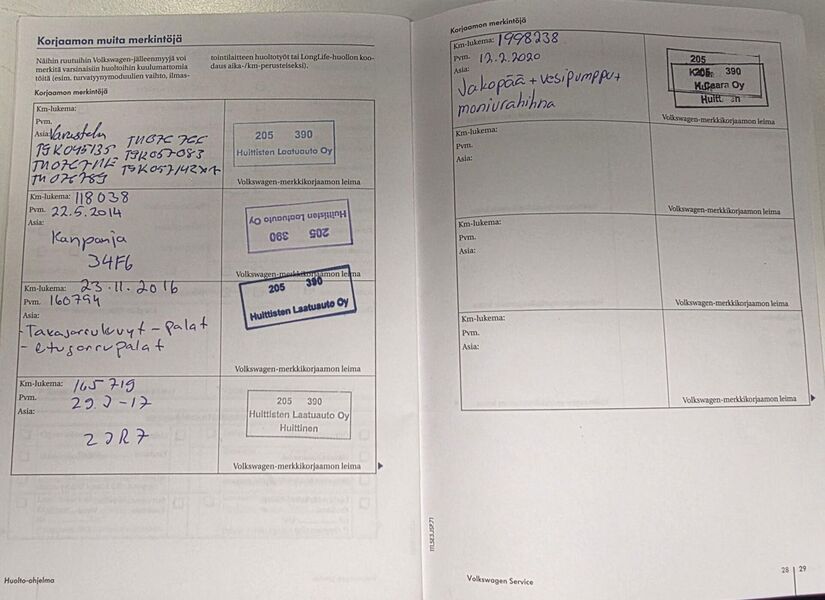 Korjaamon muita merkintöjä
Näihin ruutuihin Volkswagen-jälleenmyyjä voi
merkitä varsinaisiin huoltoihin kuulumattomia
töitä (esim. turvatyynymoduulien vaihto, ilmas-
tointilaitteen huoltotyöt tai LongLife-huollon koo-
daus aika-/km-perusteiseksi).
Korjaamon merkintöjä
Km-lukema:
Pvm.
Asia: Varustelu
205 390
Huittisten Laatuauto Oy
Volkswagen-merkkikorjaamon leima
Km-lukema: 118 038
Pvm. 22.5.2014
Asia:
Kampanja
34F6
Huittisten Laatuauto Oy
205 390
Volkswagen-merkkikorjaamon leima
Km-lukema: 23.11.2016
Pvm. 160794
Asia:
- Takajarrulevyt - palat
- etujarrupalat
205 390
Huittisten Laatuauto Oy
Volkswagen-merkkikorjaamon leima
Km-lukema: 165 719
Pvm.
Asia:
205 390
Huittisten Laatuauto Oy
Huittinen
Volkswagen-merkkikorjaamon leima
Huolto-ohjelma
Korjaamon merkintöjä
Km-lukema: 1998238
Pvm. 13.2.2020
Asia:
Jakopää + vesipumppu +
moniurahihna
205
390
Oy
Volkswagen-merkkikorjaamon leima
Km-lukema:
Pvm.
Asia:
Volkswagen-merkkikorjaamon leima
Km-lukema:
Pvm.
Asia:
Volkswagen-merkkikorjaamon leima
Km-lukema:
Pvm.
Asia:
Volkswagen-merkkikorjaamon leima
Volkswagen Service
28 | 29